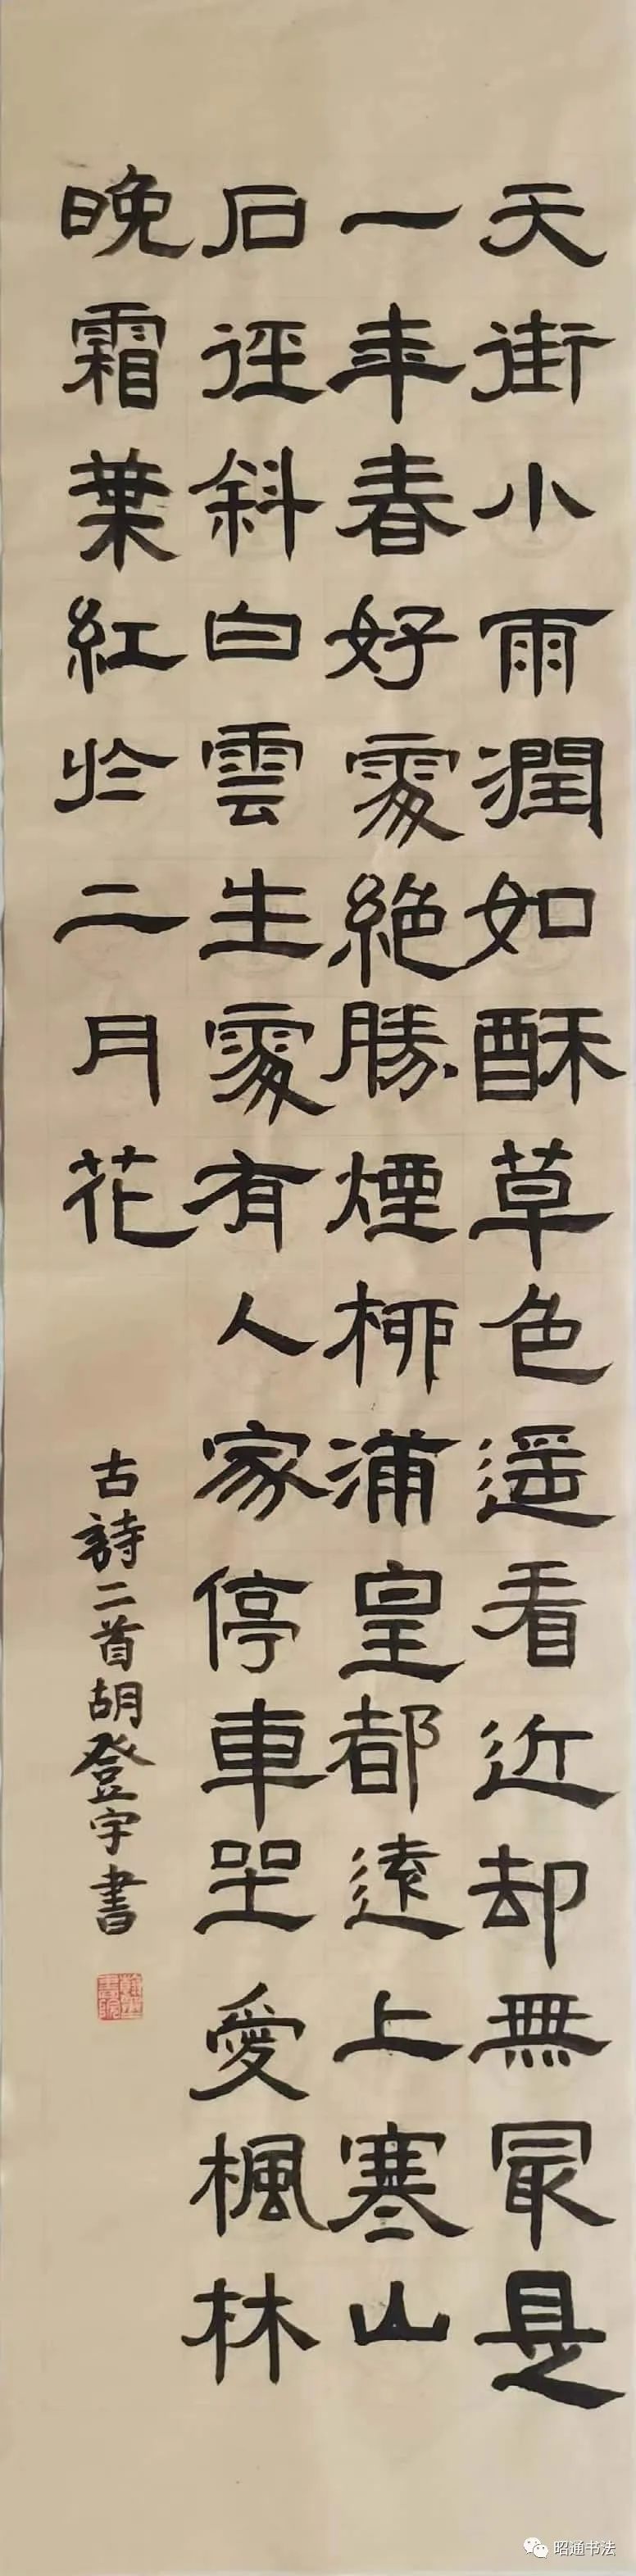 天街小雨潤如酥草色遥看近却無最是
一年春好處絶勝煙柳滿皇都遠上寒山
石徑斜白雲生處有人家停車坐愛楓林
晚霜葉紅於二月花
古詩二首胡登宇書
昭通书法